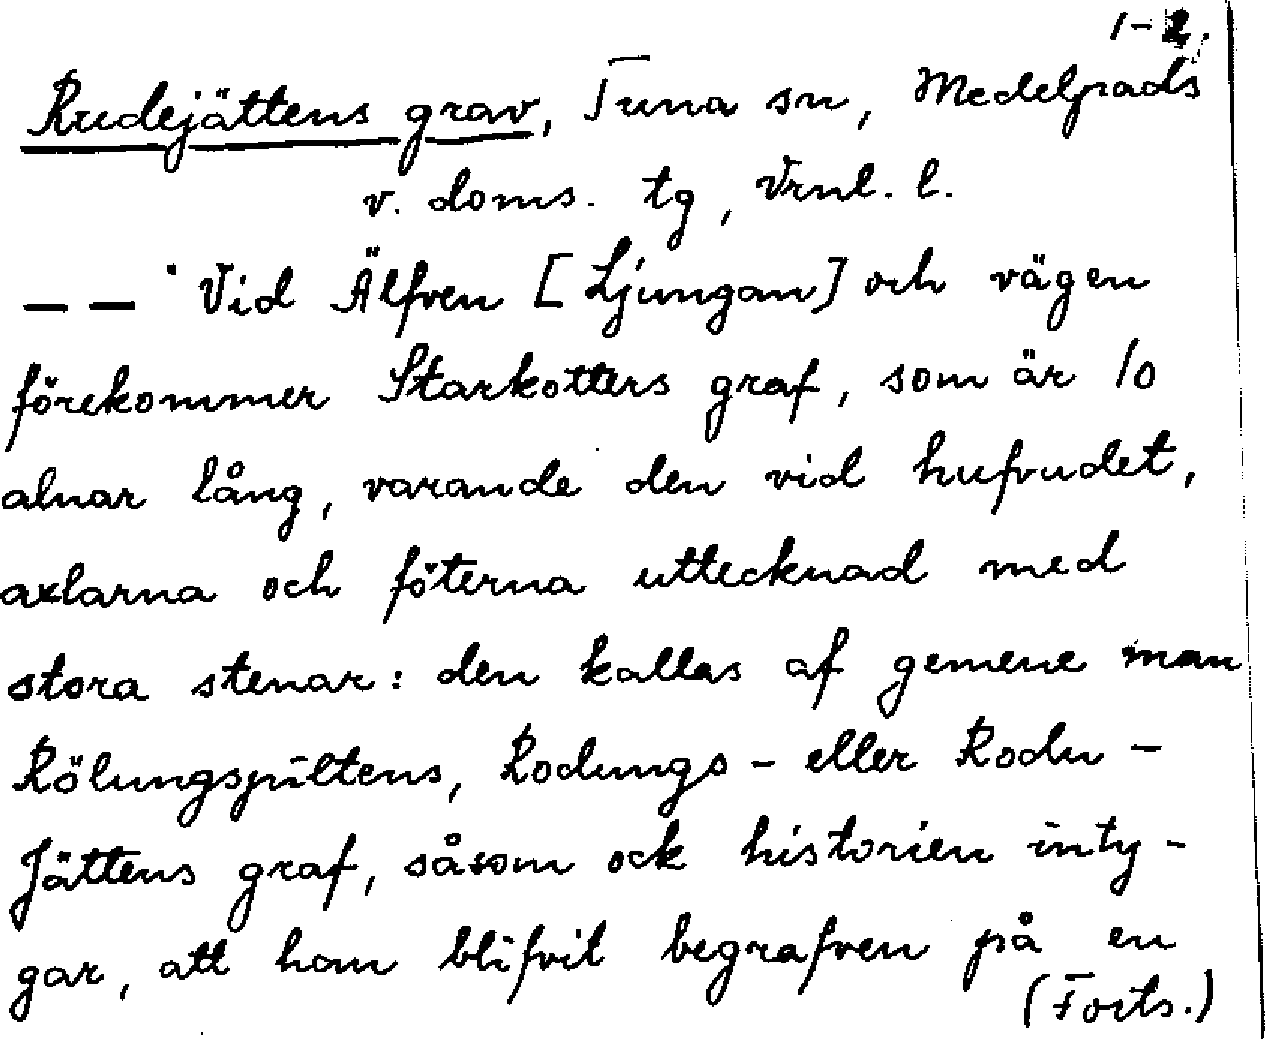 1-2.
Rudejättens grav, Tuna sn, Medelpads
v. doms. tg, Vrnl. l.
— — Vid Älfven [Ljungan] och vägen
förekommer Starkotters graf, som är 10
alnar lång, varande den vid hufvudet,
axlarna och föterna uttecknad med
stora stenar: den kallas af gemene man
Rölungspiltens, Rodungs- eller Rodu-
Jättens graf, såsom ock historien inty-
gar, att han blifvit begrafven på en
(Forts.)